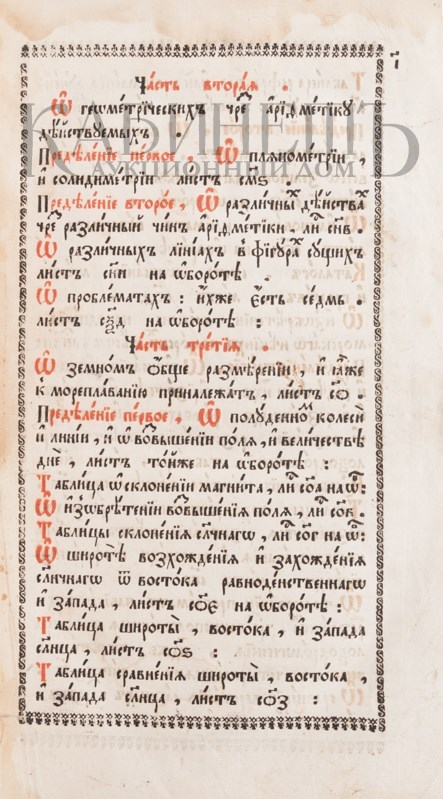 г҃і
Ча́сть втора́ѧ .
Ѡ геѡме́трїческихъ чре́ аріѳме́тїку
дѣ́йствуемыхъ .
КАБИНЕТЪ
Предѣле́нїе пе́рвое , Ѡ планоме́трїи ,
и҆ солидиме́трїи ли́стъ см҃ѕ .
АУКЦИОННЫЙ ДОМ
Предѣле́нїе второ́е , Ѡ разли́чны дѣ́йства
чре разли́чный чи́нъ аріѳме́тїки . ли сн҃в .
Ѡ разли́чныхъ лі́нїахъ в̾ фїгу́ра су́щихъ
ли́стъ на ѡ҆боро́тѣ .
Ѡ пробле́матахъ : и҆́хже є҆́сть се́дмь .
ли́стъ на ѡ҆боро́тѣ :
Ча́сть тре́тїѧ .
Ѡ земно́мъ ѻ҆́бще размѣ́ренїи , и҆ ꙗ҆́же
к̾ мореплава́нїю принадлежа́тъ , ли́стъ со҃ .
Предѣле́нїе пе́рвое , Ѡ полу́денно колесѝ
и҆ ли́нїи , и҆ ѡ҆ во́вышенїи по́лѧ , и҆ вели́чествѣ
днѐ , ли́стъ то́йже на ѡ҆боро́тѣ :
Табли́ца ѿсклоне́нїѧ магни́та , ли со҃а на ѡ҆ :
Ѡ и҆з̾ѡбрѣ́тенїи во́вышенїѧ по́лѧ , ли со҃в .
Табли́цы склоне́нїѧ сл҃нчнагѡ , ли со҃г на ѡ҆ :
Ѡ широтѣ̀ восхожде́нїѧ и҆ захожде́нїѧ
сл҃ничнагѡ ѿ восто́ка равноде́нственнагѡ
и҆ за́пада , ли́стъ со҃є на ѡ҆боро́тѣ :
Табли́ца широты̀ , восто́ка , и҆ за́пада
сл҃нца , ли́стъ со҃ѕ :
Табли́ца сравне́нїѧ широты̀ , восто́ка ,
и҆ за́пада сл҃нца , ли́стъ со҃з :